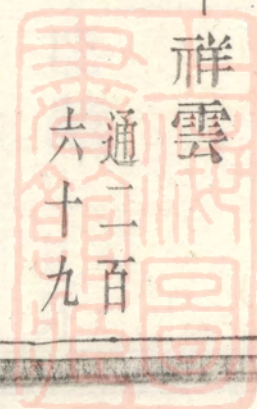 祥雲
通二百
六十九